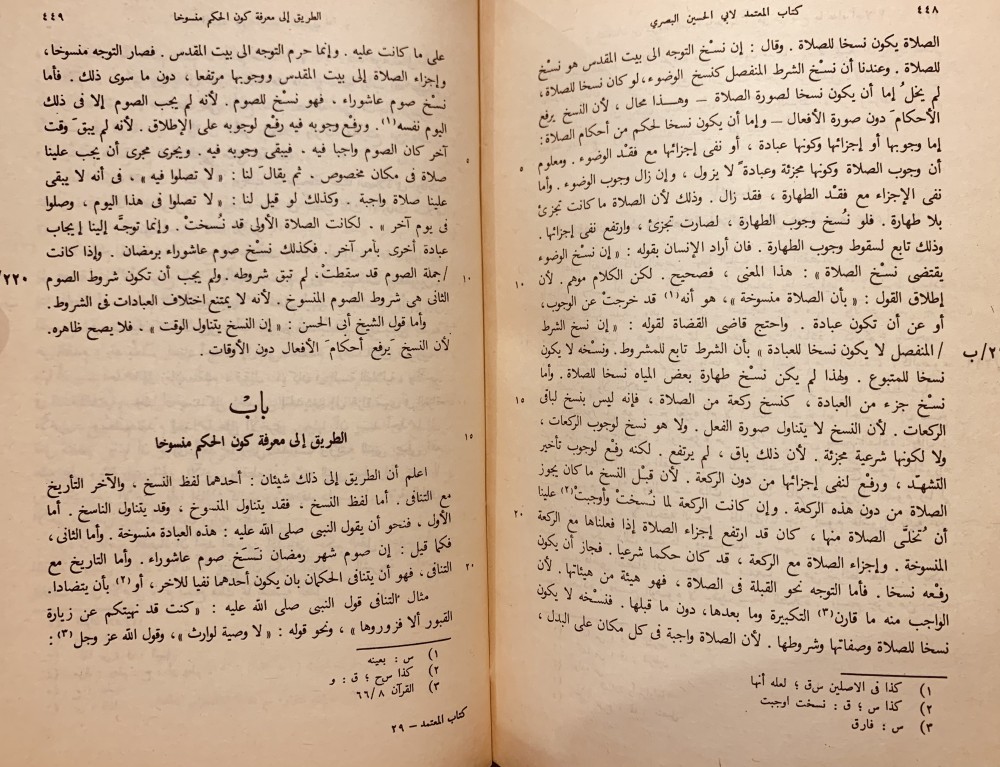 ٤٤٨
كتاب المعتمد لابي الحسين البصري
الصلاة يكون نسخا للصلاة . وقال : إن نسْخ التوجه الى بيت المقدس هو نسْخ
للصلاة . وعندنا أن نسْخ الشرط المنفصل كنسخ الوضوء ، لو كان نسخا للصلاة ،
لم يخلُ إما أن يكون نسخا لصورة الصلاة – وهــذا محال ، لأن النسخ يرفع
الأحكامَ دون صورة الأفعال – وإما أن يكون نسخا لحكم من أحكام الصلاة :
إما وجوبها أو إجزائها وكونها عبادة ، أو نفى إجزائها مع فقْد الوضوء . ومعلوم
٥
أن وجوب الصلاة وكونها مجزئة وعبادةً لا يزول ، وإن زال وجوب الوضوء . وأما
نفى الإجزاء مع فقْد الطهارة ، فقد زال . وذلك لأن الصلاة ما كانت تجزئ
بلا طهارة . فلو نُسخ وجوب الطهارة ، لصارت تجزئ ، وارتفع نفى إجزائها .
وذلك تابع لسقوط وجوب الطهارة . فان أراد الإنسان بقوله : « إن نسْخ الوضوء
يقتضى نسْخ الصلاة » : هذا المعنى ، فصحيح . لكن الكلام موهم . لأن
١٠
إطلاق القول : « بأن الصلاة منسوخة » ، هو أنه(١) قد خرجتْ عن الوجوب ،
أو عن أن تكون عبادة . واحتج قاضى القضاة لقوله : « إن نسخ الشرط
/ المنفصل لا يكون نسخا للعبادة » بأن الشرط تابع للمشروط . ونسْخه لا يكون
/ب
نسخا للمتبوع . ولهذا لم يكن نسْخ طهارة بعض المياه نسخا للصلاة . وأما
نسْخ جزء من العبادة ، كنسخ ركعة من الصلاة ، فإنه ليس بنسخ لباقى
١٥
الركعات . لأن النسخ لا يتناول صورة الفعل . ولا هو نسخ لوجوب الركعات ،
ولا لكونها شرعية مجزئة . لأن ذلك باق ، لم يرتفع . لكنه رفْع لوجوب تأخير
التشهد ، ورفْع لنفى إجزائها من دون الركعة . لأن قبْل النسخ ما كان يجوز
الصلاة من دون هذه الركعة . وإن كانت الركعة لما نُسختْ وأوجبتْ(٢) علينا
أن تُخلَّى الصلاة منها ، كان قد ارتفع إجزاء الصلاة إذا فعلناها مع الركعة
٢٠
المنسوخة . وإجزاء الصلاة مع الركعة ، قد كان حكما شرعيا . فجاز أن يكون
رفْعه نسخا . فأما التوجه نحو القبلة فى الصلاة ، فهو هيئة من هيئاتها . لأن
الواجب منه ما قارن(٣) التكبيرة وما بعدها ، دون ما قبلها . فنسْخه لا يكون
نسخا للصلاة وصفاتها وشروطها . لأن الصلاة واجبة فى كل مكان على البدل ،
١) كذا فى الاصلين س ق ؛ لعله أنها
٢) كذا س ؛ ق : نسخت اوجبت
٣) س : فارق
الطريق إلى معرفة كون الحكم منسوخا
٤٤٩
على ما كانت عليه . وإنما حرم التوجه الى بيت المقدس . فصار التوجه منسوخا ،
وإجزاء الصلاة إلى بيت المقدس ووجوبها مرتفعا ، دون ما سوى ذلك . فأما
نسْخ صوم عاشوراء . فهو نسْخ للصوم . لأنه لم يجب الصوم إلا فى ذلك
اليوم نفسه(١) . ورفْع وجوبه فيه رفْع لوجوبه على الإطلاق . لأنه لم يبقَ وقت
آخر كان الصوم واجبا فيه . فيبقى وجوبه فيه . ويجرى مجرى أن يجب علينا
٥
صلاة فى مكان مخصوص . ثم يقالَ لنا : « لا تصلوا فيه » . فى أنه لا يبقى
علينا صلاة واجبة . وكذلك لو قيل لنا : « لا تصلوا فى هذا اليوم ، وصلوا
فى يوم آخر » . لكانت الصلاة الأولى قد نُسختْ . وإنما توجهَّ إلينا إيجاب
عبادة أخرى بأمر آخر . فكذلك نسْخ صوم عاشوراء برمضان . وإذا كانت
/ جملة الصوم قد سقطتْ ، لم تبق شروطه . ولم يجب أن تكون شروط الصوم
١٠
/٢٢٠
الثانى هى شروط الصوم المنسوخ . لأنه لا يمتنع اختلاف العبادات فى الشروط .
وأما قول الشيخ أبى الحسن : « إن النسخ يتناول الوقت » . فلا يصح ظاهره .
لأن النسخ يَرفع أحكامَ الأفعال دون الأوقات .
بابٌ
الطريق إلى معرفة كون الحكم منسوخا
١٥
اعلم أن الطريق إلى ذلك شيئان : أحدهما لفظ النسخ . والآخر التأريخ
مع التنافى . أما لفظ النسخ . فقد يتناول المنسوخ ، وقد يتناول الناسخ . أما
الأول ، فنحو أن يقول النبى صلى الله عليه : هذه العبادة منسوخة . وأما الثانى ،
فكما قيل : إن صوم شهر رمضان نَسَخَ صوم عاشوراء . وأما التاريخ مع
التنافى . فهو أن يتنافى الحكمان بان يكون أحدهما نفيا للآخر ، أو(٢) بأن يتضادا .
٢٠
مثال التنافى قول النبى صلى الله عليه : « كنت قد نهيتكم عن زيارة
القبور ألا فزوروها » ، ونحو قوله : « لا وصية لوارث » ، وقول الله عز وجل(٣) :
١) س : بعينه
٢) كذا س ح ؛ ق : و
٣) القرآن ٦٦/٨
كتاب المعتمد – ٢٩